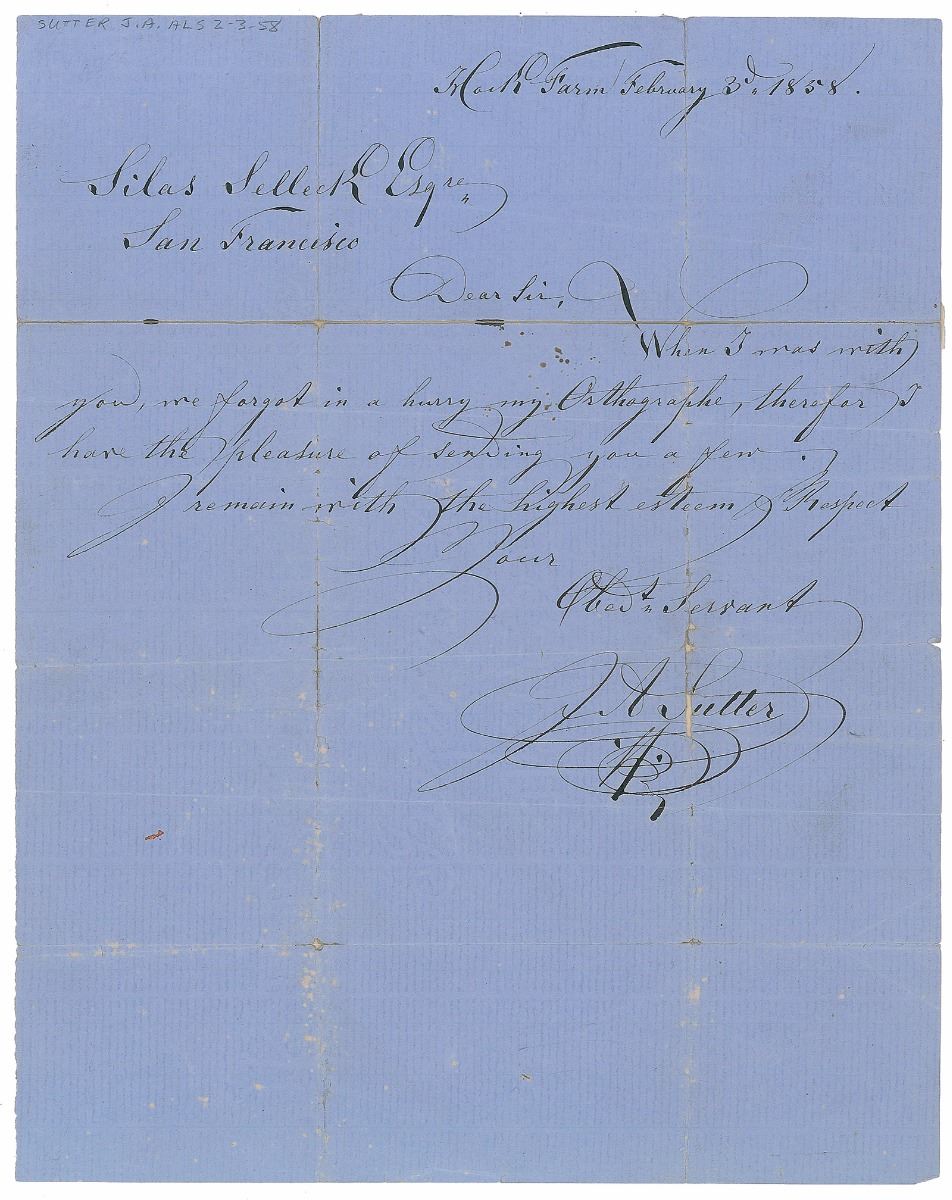 SUTTER J.A. ALS 2-3-58
Hock Farm February 3d. 1858.
Silas Selleck Esqre
San Francisco
Dear Sir,
When I was with
you, we forgot in a hurry my Orthographe, therefor I
have the pleasure of sending you a few.
I remain with the highest esteem & Respect
Your
Obedt. Servant
J A Sutter